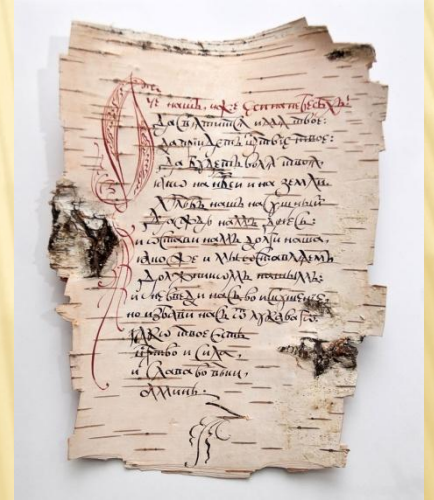 Ѻч҃е нашъ, иже еси на небесѣхъ:
да свѧтитсѧ имѧ твое:
да прiидетъ црт҃вiе твое:
да будетъ волѧ твоѧ
ꙗко на нб҃си и на земли.
Хлѣбъ нашъ насущный
даждь намъ днесь:
и ѡстави намъ долги наша,
ꙗкоже и мы ѡставлѧемъ
должникомъ нашымъ:
и не введи насъ во искушенiе,
но избави насъ ѿ лукаваго.
ꙗко твое есть
црт҃во и сила,
и слава во вѣки,
аминь.